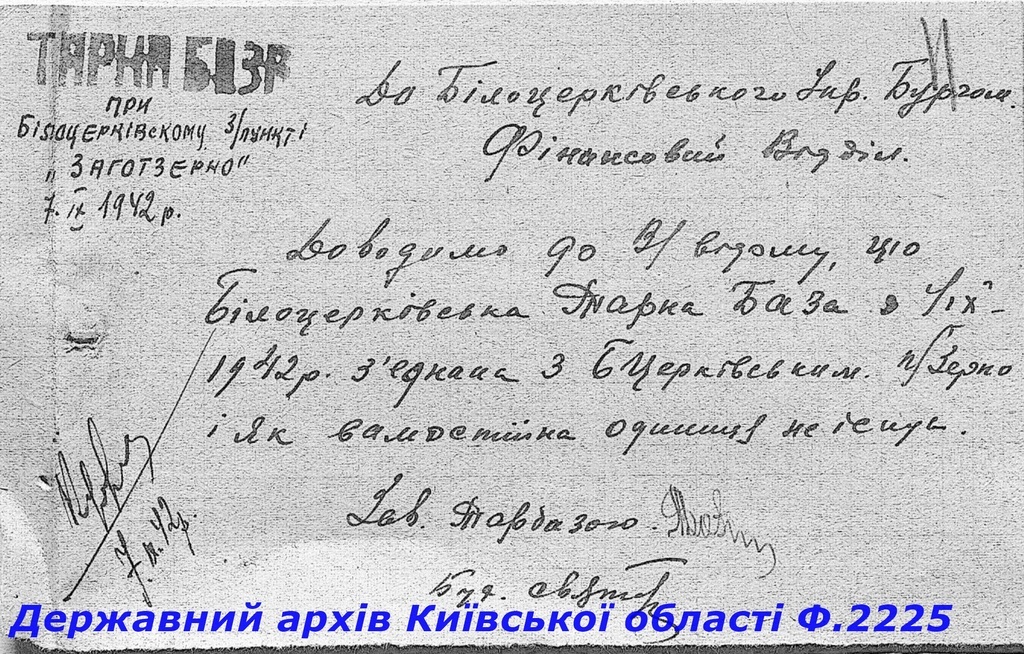 ТАРНА БАЗА
при
Білоцерківскому з/пункті
„Заготзерно"
7.ІХ 1942 р.
До Білоцерківського Упр. Бургом.
Фінансовий Відділ.
Доводимо до В/відому, що
Білоцерківська Тарна База з 1/ІХ-
1942р. з'еднана з БЦерківським. п/Зерно
і як самостійна одиниця не існує.
Зав. Тарбазою.
Бух.
Державний архів Київської області Ф.2225